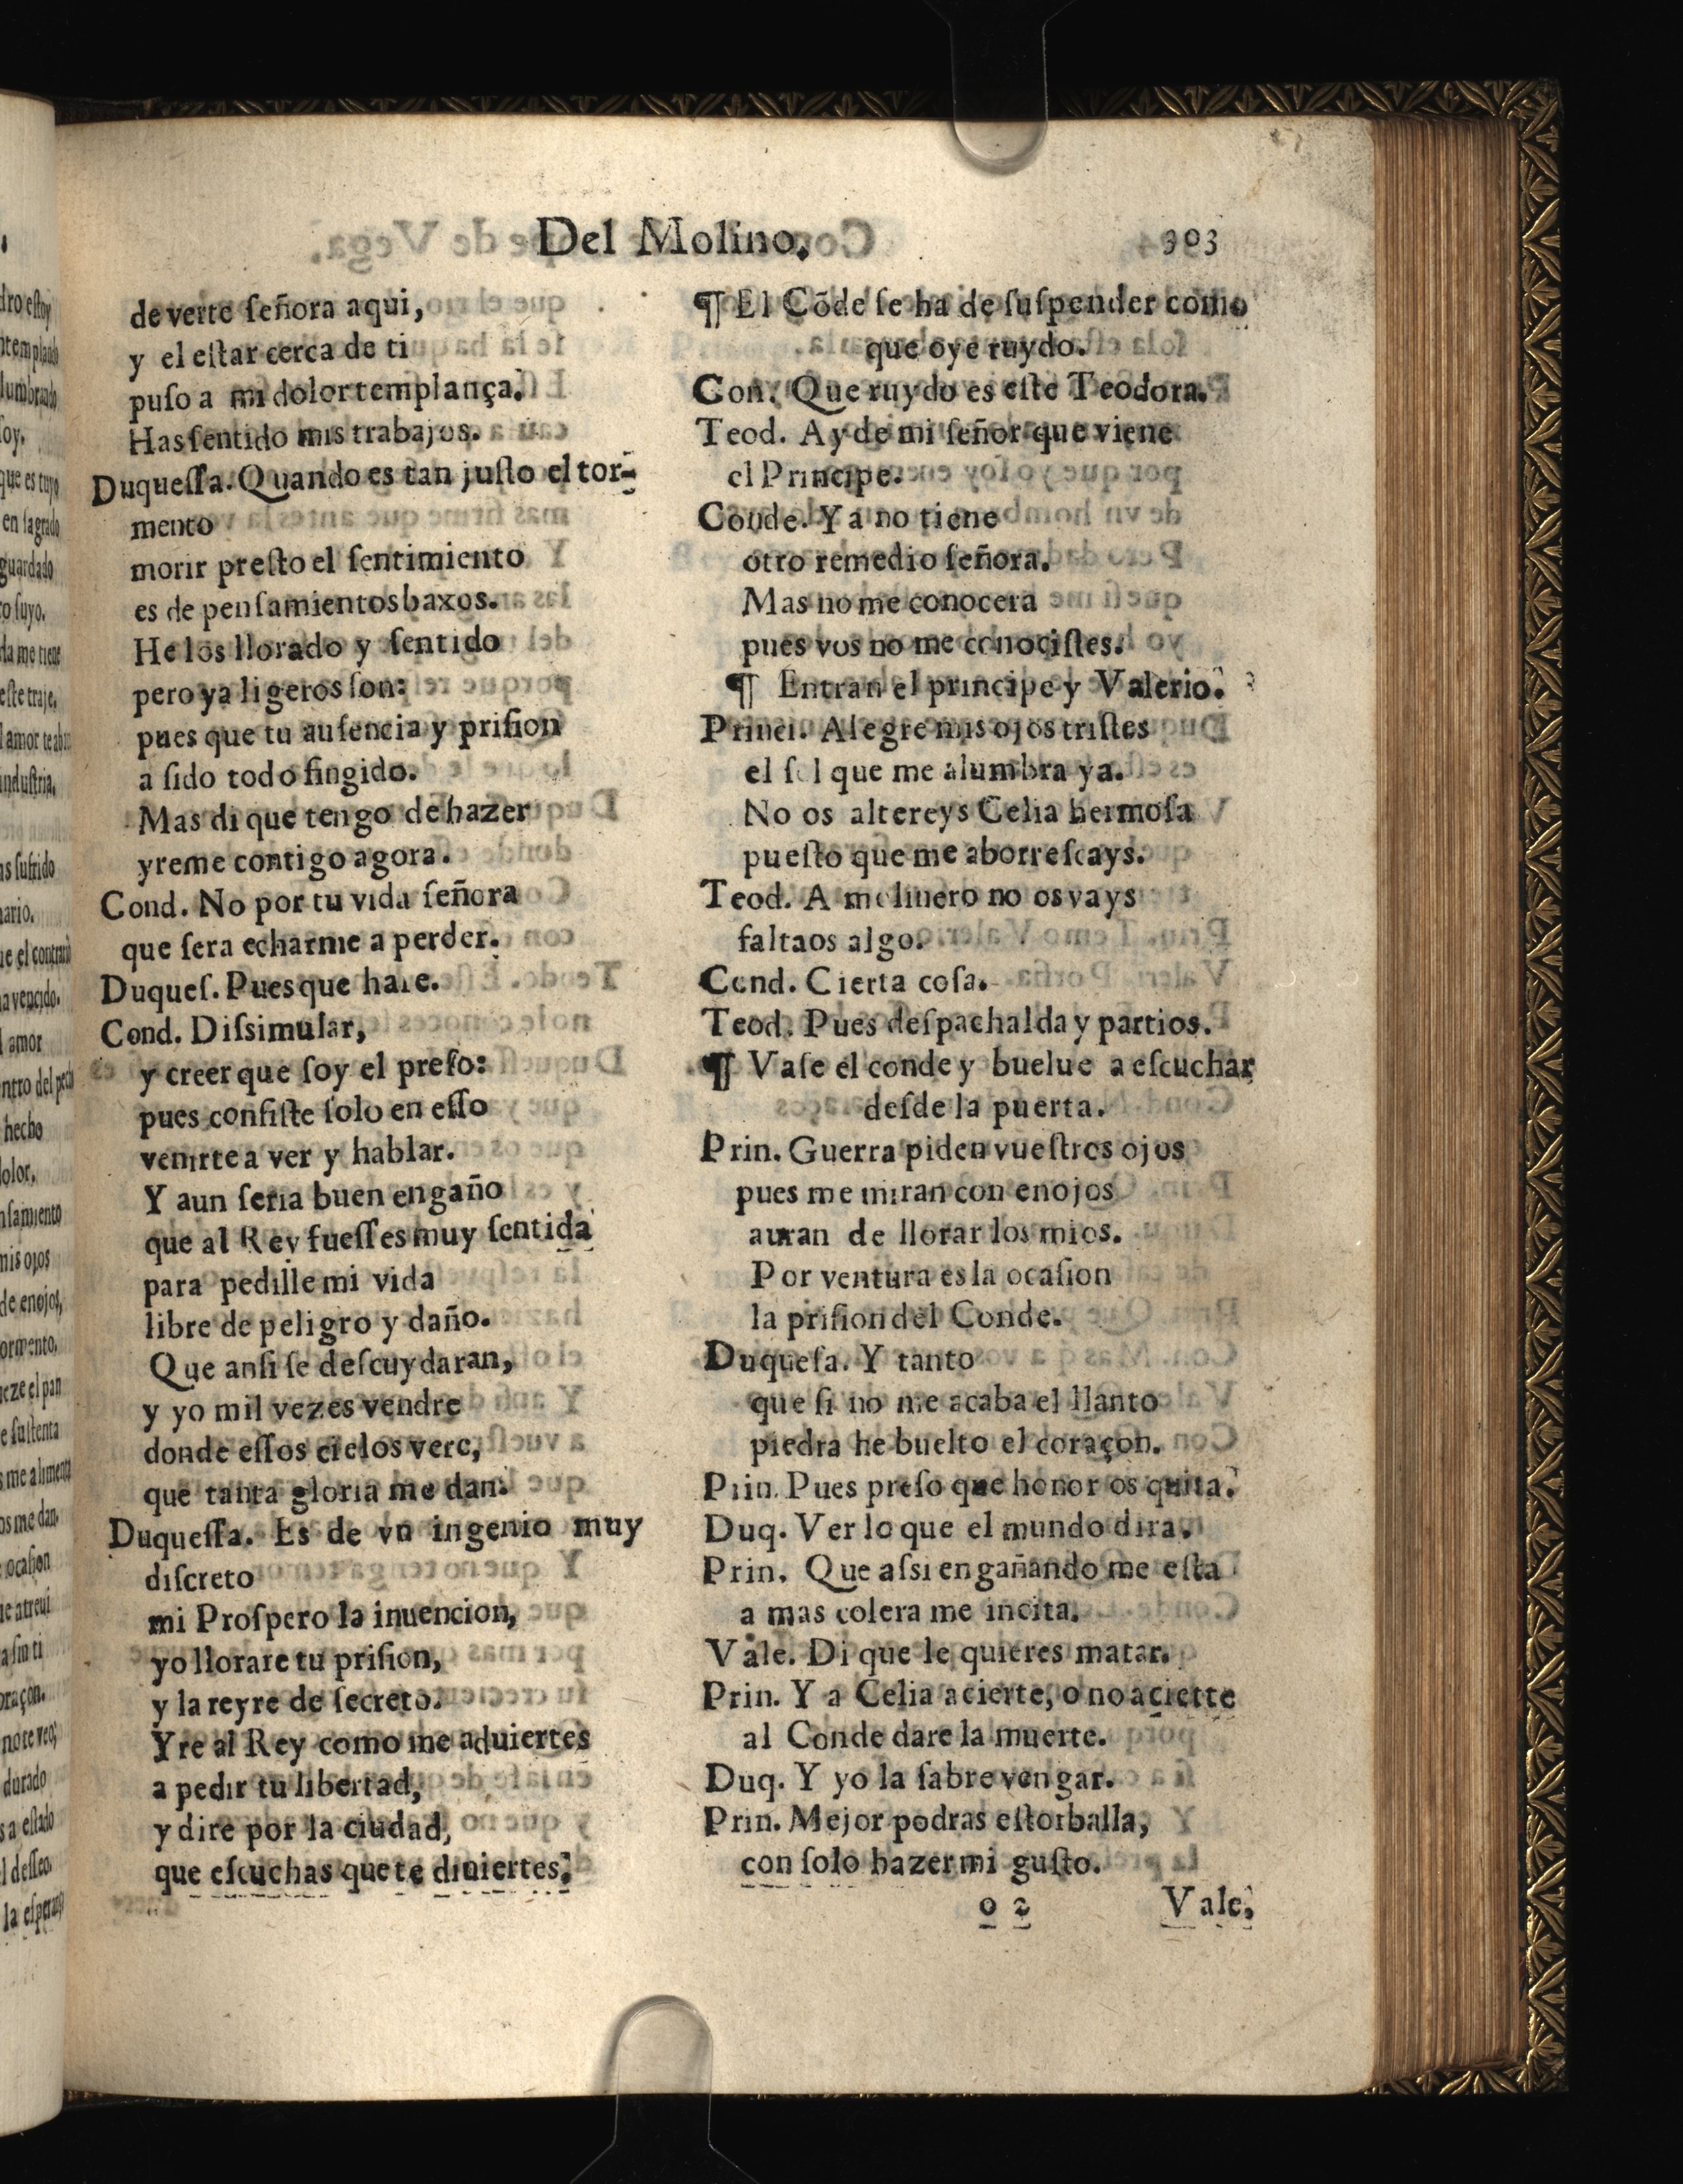 Del Molino.
303
de verte ſeñora aqui,
y el eſtar cerca de ti
puſo a mi dolor templança.
Has ſentido mis trabajos.
Duqueſſa. Quando es tan juſto el tor-
mento
morir preſto el ſentimiento
es de penſamientos baxos.
He los llorado y ſentido
pero ya ligeros ſon:
pues que tu auſencia y priſion
a ſido todo fingido.
Mas di que tengo de hazer
yreme contigo agora.
Cond. No por tu vida ſeñora
que ſera echarme a perder.
Duqueſ. Pues que hare.
Cond. Diſsimular,
y creer que ſoy el preſo:
pues conſiſte ſolo en eſſo
venirte a ver y hablar.
Y aun ſeria buen engaño
que al Rey fueſſes muy ſentida
para pedille mi vida
libre de peligro y daño.
Que anſi ſe deſcuydaran,
y yo mil vezes vendre
donde eſſos cielos vere,
que tanta gloria me dan.
Duqueſſa. Es de vn ingenio muy
diſcreto
mi Proſpero la inuencion,
yo llorare tu priſion,
y la reyre de ſecreto.
Yre al Rey como me aduiertes
a pedir tu libertad,
y dire por la ciudad,
que eſcuchas que te diuiertes.
¶ El Cõde ſe ha de ſuſpender como
que oye ruydo.
Con. Que ruydo es eſte Teodora.
Teod. Ay de mi ſeñor que viene
el Principe.
Conde. Ya no tiene
otro remedio ſeñora.
Mas no me conocera
pues vos no me conociſtes.
¶ Entran el principe y Valerio.
Princi. Alegre mis ojos triſtes
el ſol que me alumbra ya.
No os altereys Celia hermoſa
pueſto que me aborreſcays.
Teod. A molinero no os vays
faltaos algo.
Cond. Cierta coſa.
Teod. Pues deſpachalda y partios.
¶ Vaſe el conde y buelue a eſcuchar
deſde la puerta.
Prin. Guerra piden vueſtros ojos
pues me miran con enojos
auran de llorar los mios.
Por ventura es la ocaſion
la priſion del Conde.
Duqueſa. Y tanto
que ſi no me acaba el llanto
piedra he buelto el coraçon.
Prin. Pues preſo que honor os quita.
Duq. Ver lo que el mundo dira.
Prin. Que aſsi engañando me eſta
a mas colera me incita.
Vale. Di que le quieres matar.
Prin. Y a Celia acierte, o no acierte
al Conde dare la muerte.
Duq. Y yo la ſabre vengar.
Prin. Mejor podras eſtorballa,
con ſolo hazer mi guſto.
o 2
Vale.